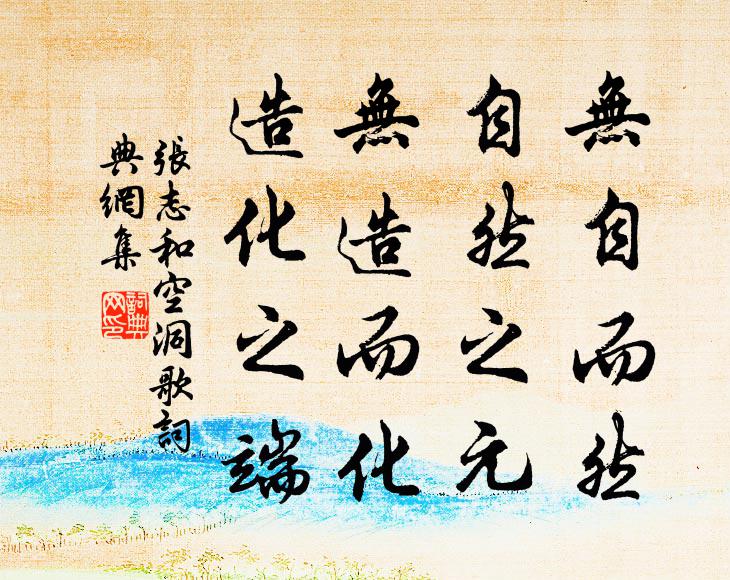 無自而然
自然之元
無造而化
造化之端
張志和空洞歌詞
典網集
詞典網印